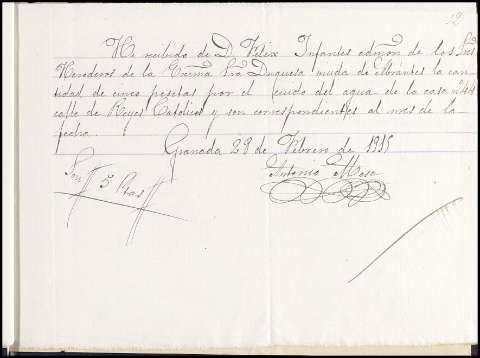 12
He recibido de D. Felix Infantes admon de los Sres
Herederos de la Excma Sra Duquesa viuda de Abrantes la can-
tidad de cinco pesetas por el cuido del agua de la casa nº 44
calle de Reyes Catolicos y son correspondientes al mes de la
fecha.
Granada 28 de Febrero de 1915
Son 5 Ptas
Antonio Mesa